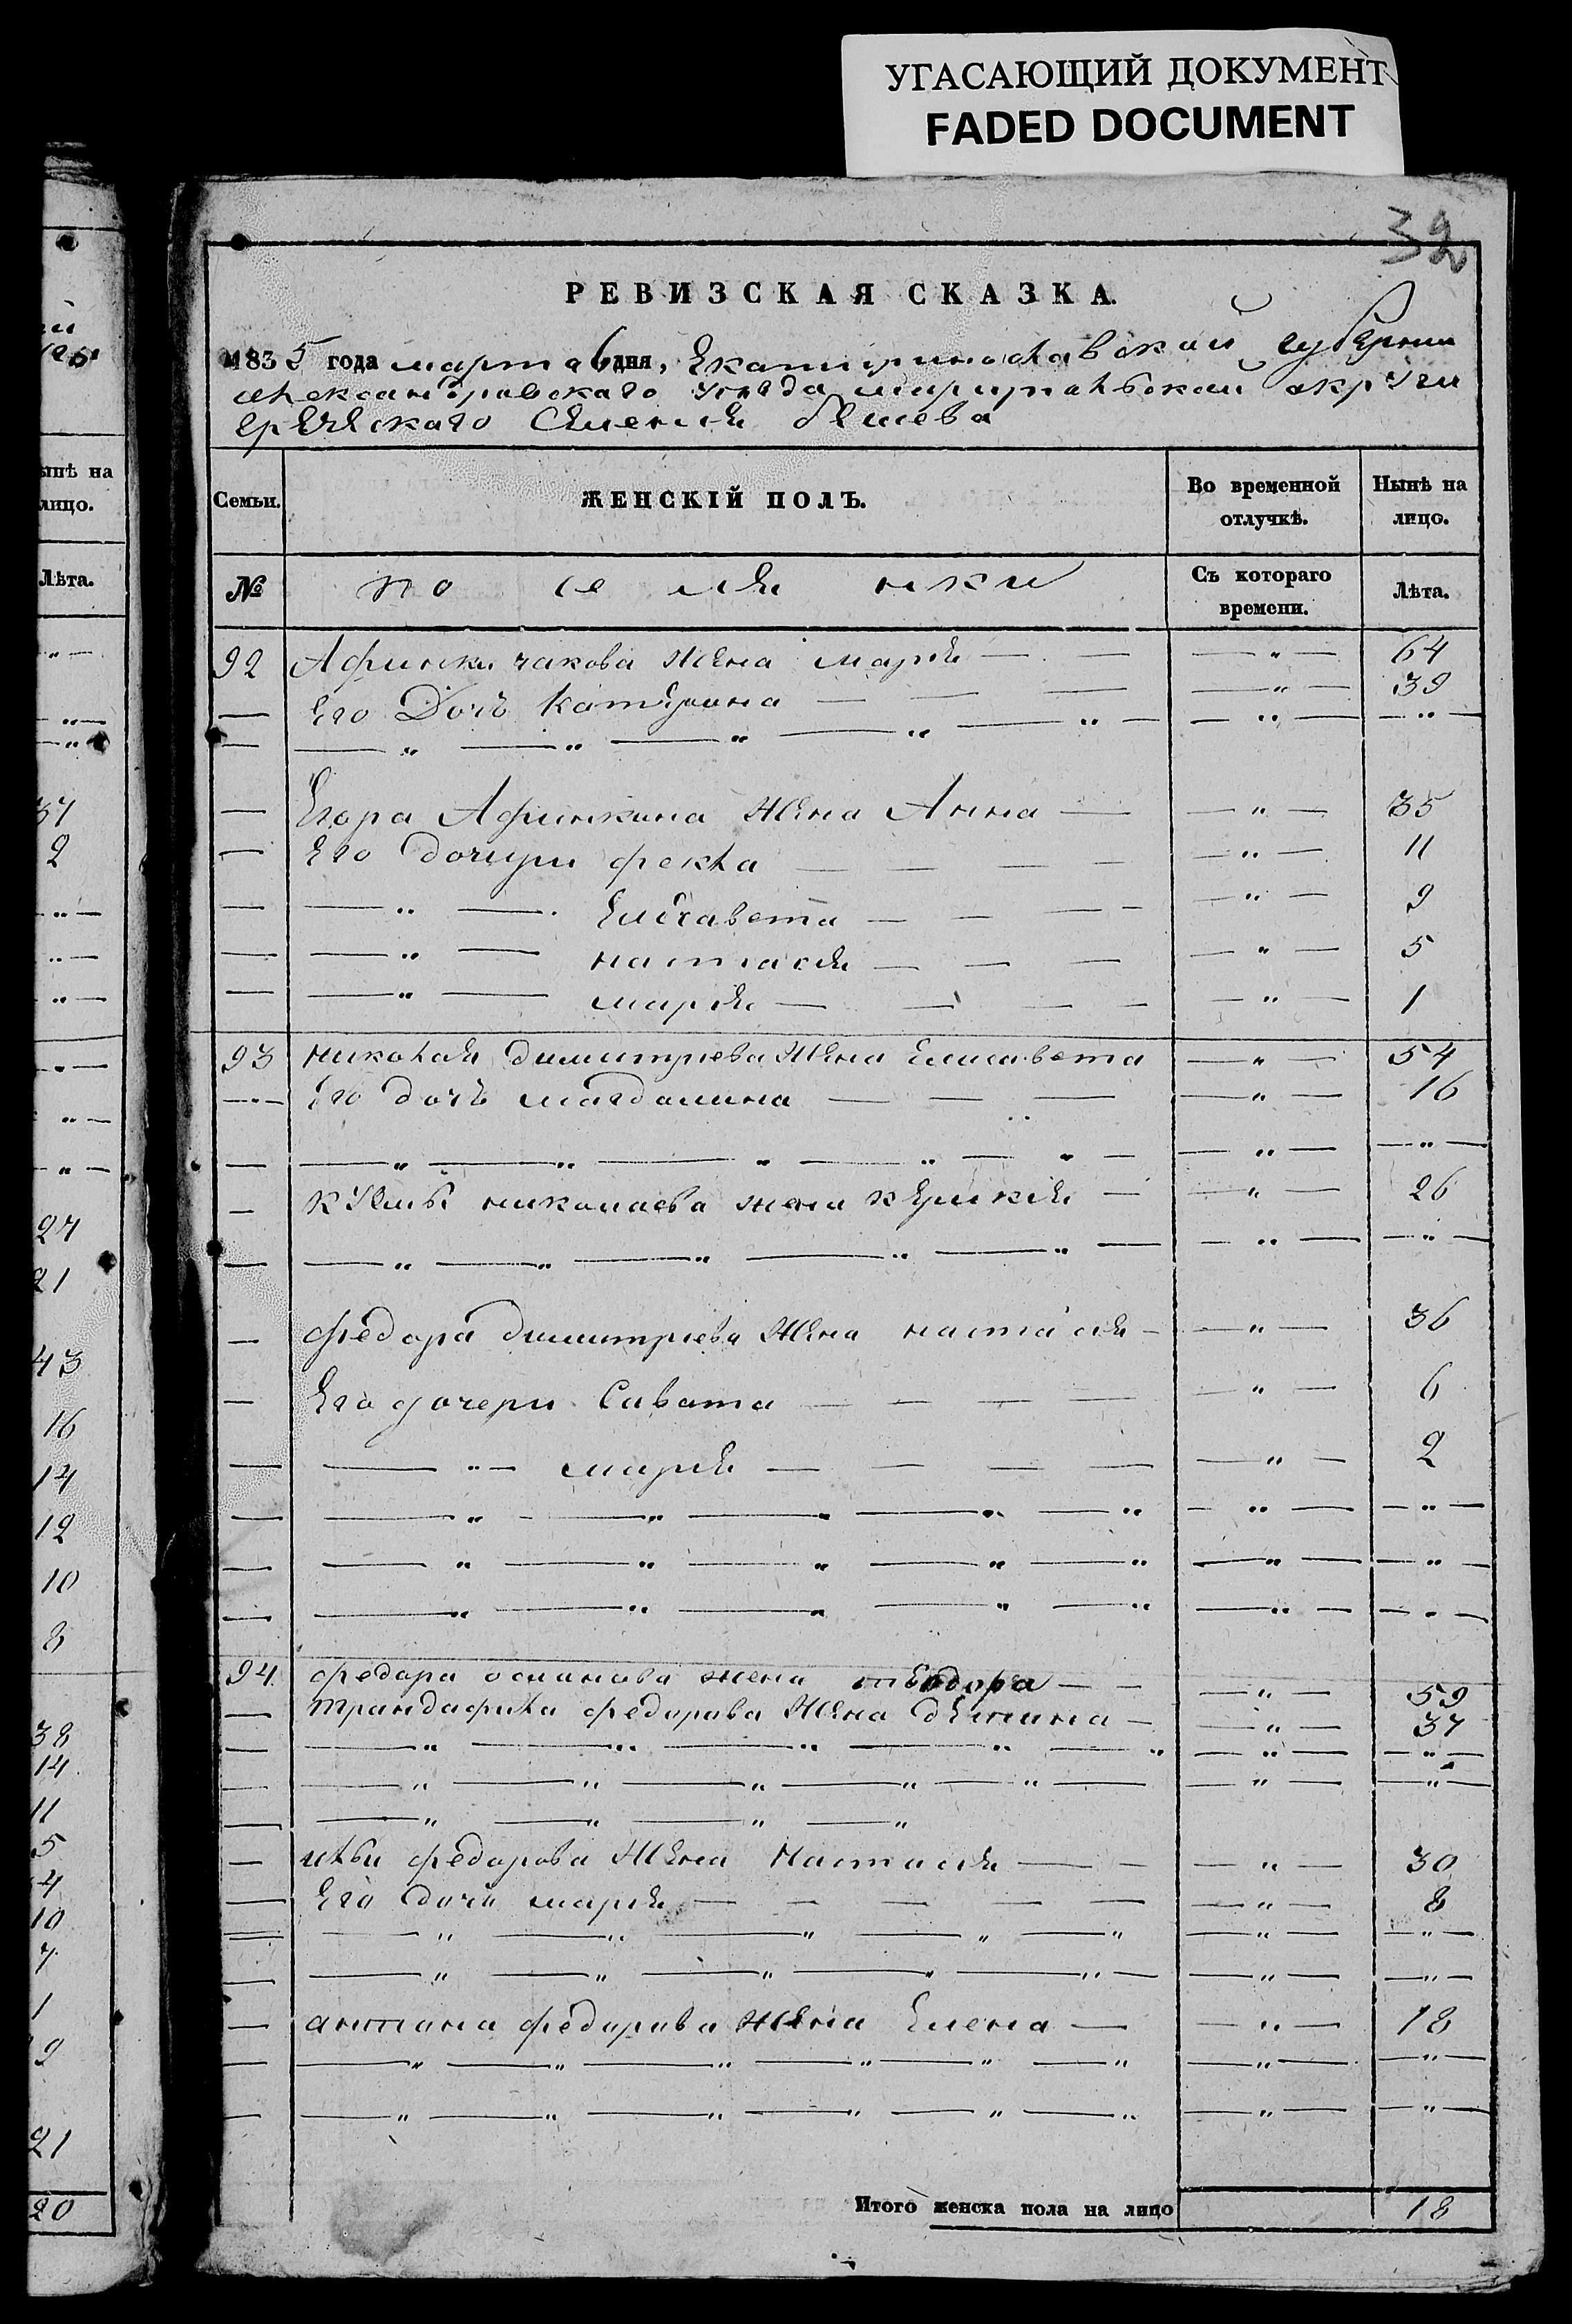 УГАСАЮЩИЙ ДОКУМЕНТ
FADED DOCUMENT
32
РЕВИЗСКАЯ СКАЗКА.
1835 года марта 6 дня, Екатеринославской губернии
александровского уезда мариупольской округи
греческаго Селения бешева
Семьи. ЖЕНСКІЙ ПОЛЪ. Во временной отлучкѣ. Нынѣ на лицо.
№ поселянки Съ котораго времени. Лѣта.
92 Афинки чакова жена марія — — — " — 64
— Его Дочь Катерина — — — — " — 39
— — " — " — " — " — " — — " — — " —
— Егора Афинкина жена Анна — — " — 35
— Его дочери фекла — — — — — " — 11
— — " — Елисавета — — — — — " — 9
— — " — настасия — — — — " — 5
— — " — мария — — — — — " — 1
93 николая димитриева жена Елисавета — " — 54
— " — Его дочь магдалина — — — — " — 16
— — " — " — " — " — " — — " — — " —
— николаева жена — — " — 26
— — " — " — " — " — " — — " — — " —
— федора димитриева жена настасия — — " — 36
— Его дочери Савата — — — — — " — 6
— — " — мария — — — — — " — 2
— — " — " — " — " — " — " — — " —
— — " — " — " — " — " — " — — " —
— — " — " — " — " — " — " — — " —
94 федора осипова жена — — — " — 59
— трандафила федорова жена — — " — 37
— — " — " — " — " — " — " — — " —
— — " — " — " — " — " — — " — — " —
— — " — " — " — "
— федорова жена Настасия — — — " — 30
— Его дочь мария — — — — — — " — 8
— — " — " — " — " — " — " — — " —
— — " — " — " — " — " — — " — — " —
— антона федорова жена Елена — — " — 18
— — " — " — " — " — " — " — " — — " —
— — " — " — " — " — " — " — " — — " —
Итого женска пола на лицо 18
ынѣ на
лицо.
Лѣта.
37
2
27
21
43
16
14
12
10
8
38
14
11
5
4
10
7
1
9
21
20